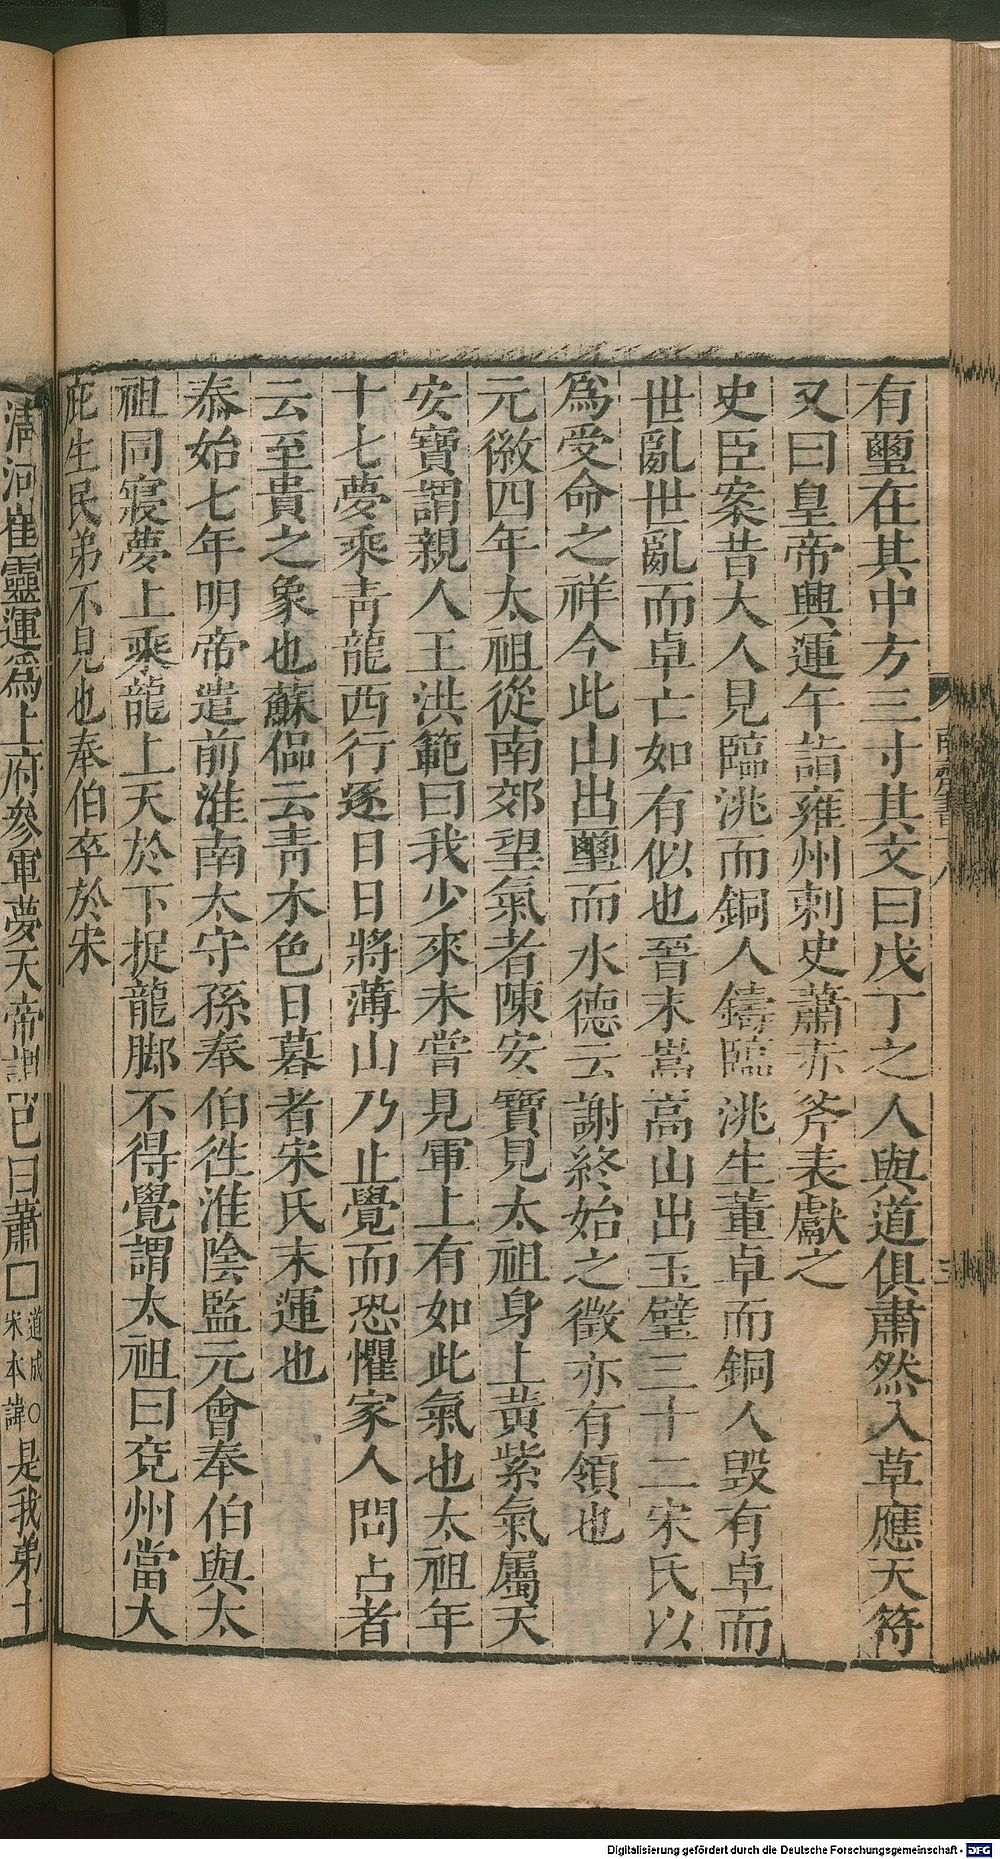 有璽在其中方三寸其文曰戊丁之人與道俱肅然入草應天符
又曰皇帝興運午詣雍州刺史蕭赤斧表獻之
史臣案昔大人見臨洮而銅人鑄臨洮生董卓而銅人毀有卓而
世亂世亂而卓亡如有似也晉末嵩高山出玉璧三十二宋氏以
爲受命之祥今此山出璽而水德云謝終始之徵亦有領也
元徽四年太祖從南郊望氣者陳安寶見太祖身上黃紫氣屬天
安寶謂親人王洪範曰我少來未嘗見軍上有如此氣也太祖年
十七夢乘青龍西行逐日日將薄山乃止覺而恐懼家人問占者
云至貴之象也蘇偘云青木色日暮者宋氏末運也
泰始七年明帝遣前淮南太守孫奉伯徃淮陰監元會奉伯與太
祖同寢夢上乘龍上天於下捉龍脚不得覺謂太祖曰兗州當大
庇生民弟不見也奉伯卒於宋
清河崔靈運爲上府參軍夢天帝謂己曰蕭□道成○宋本諱是我弟十
南齊書 八
三
Digitalisierung gefördert durch die Deutsche Forschungsgemeinschaft - DFG